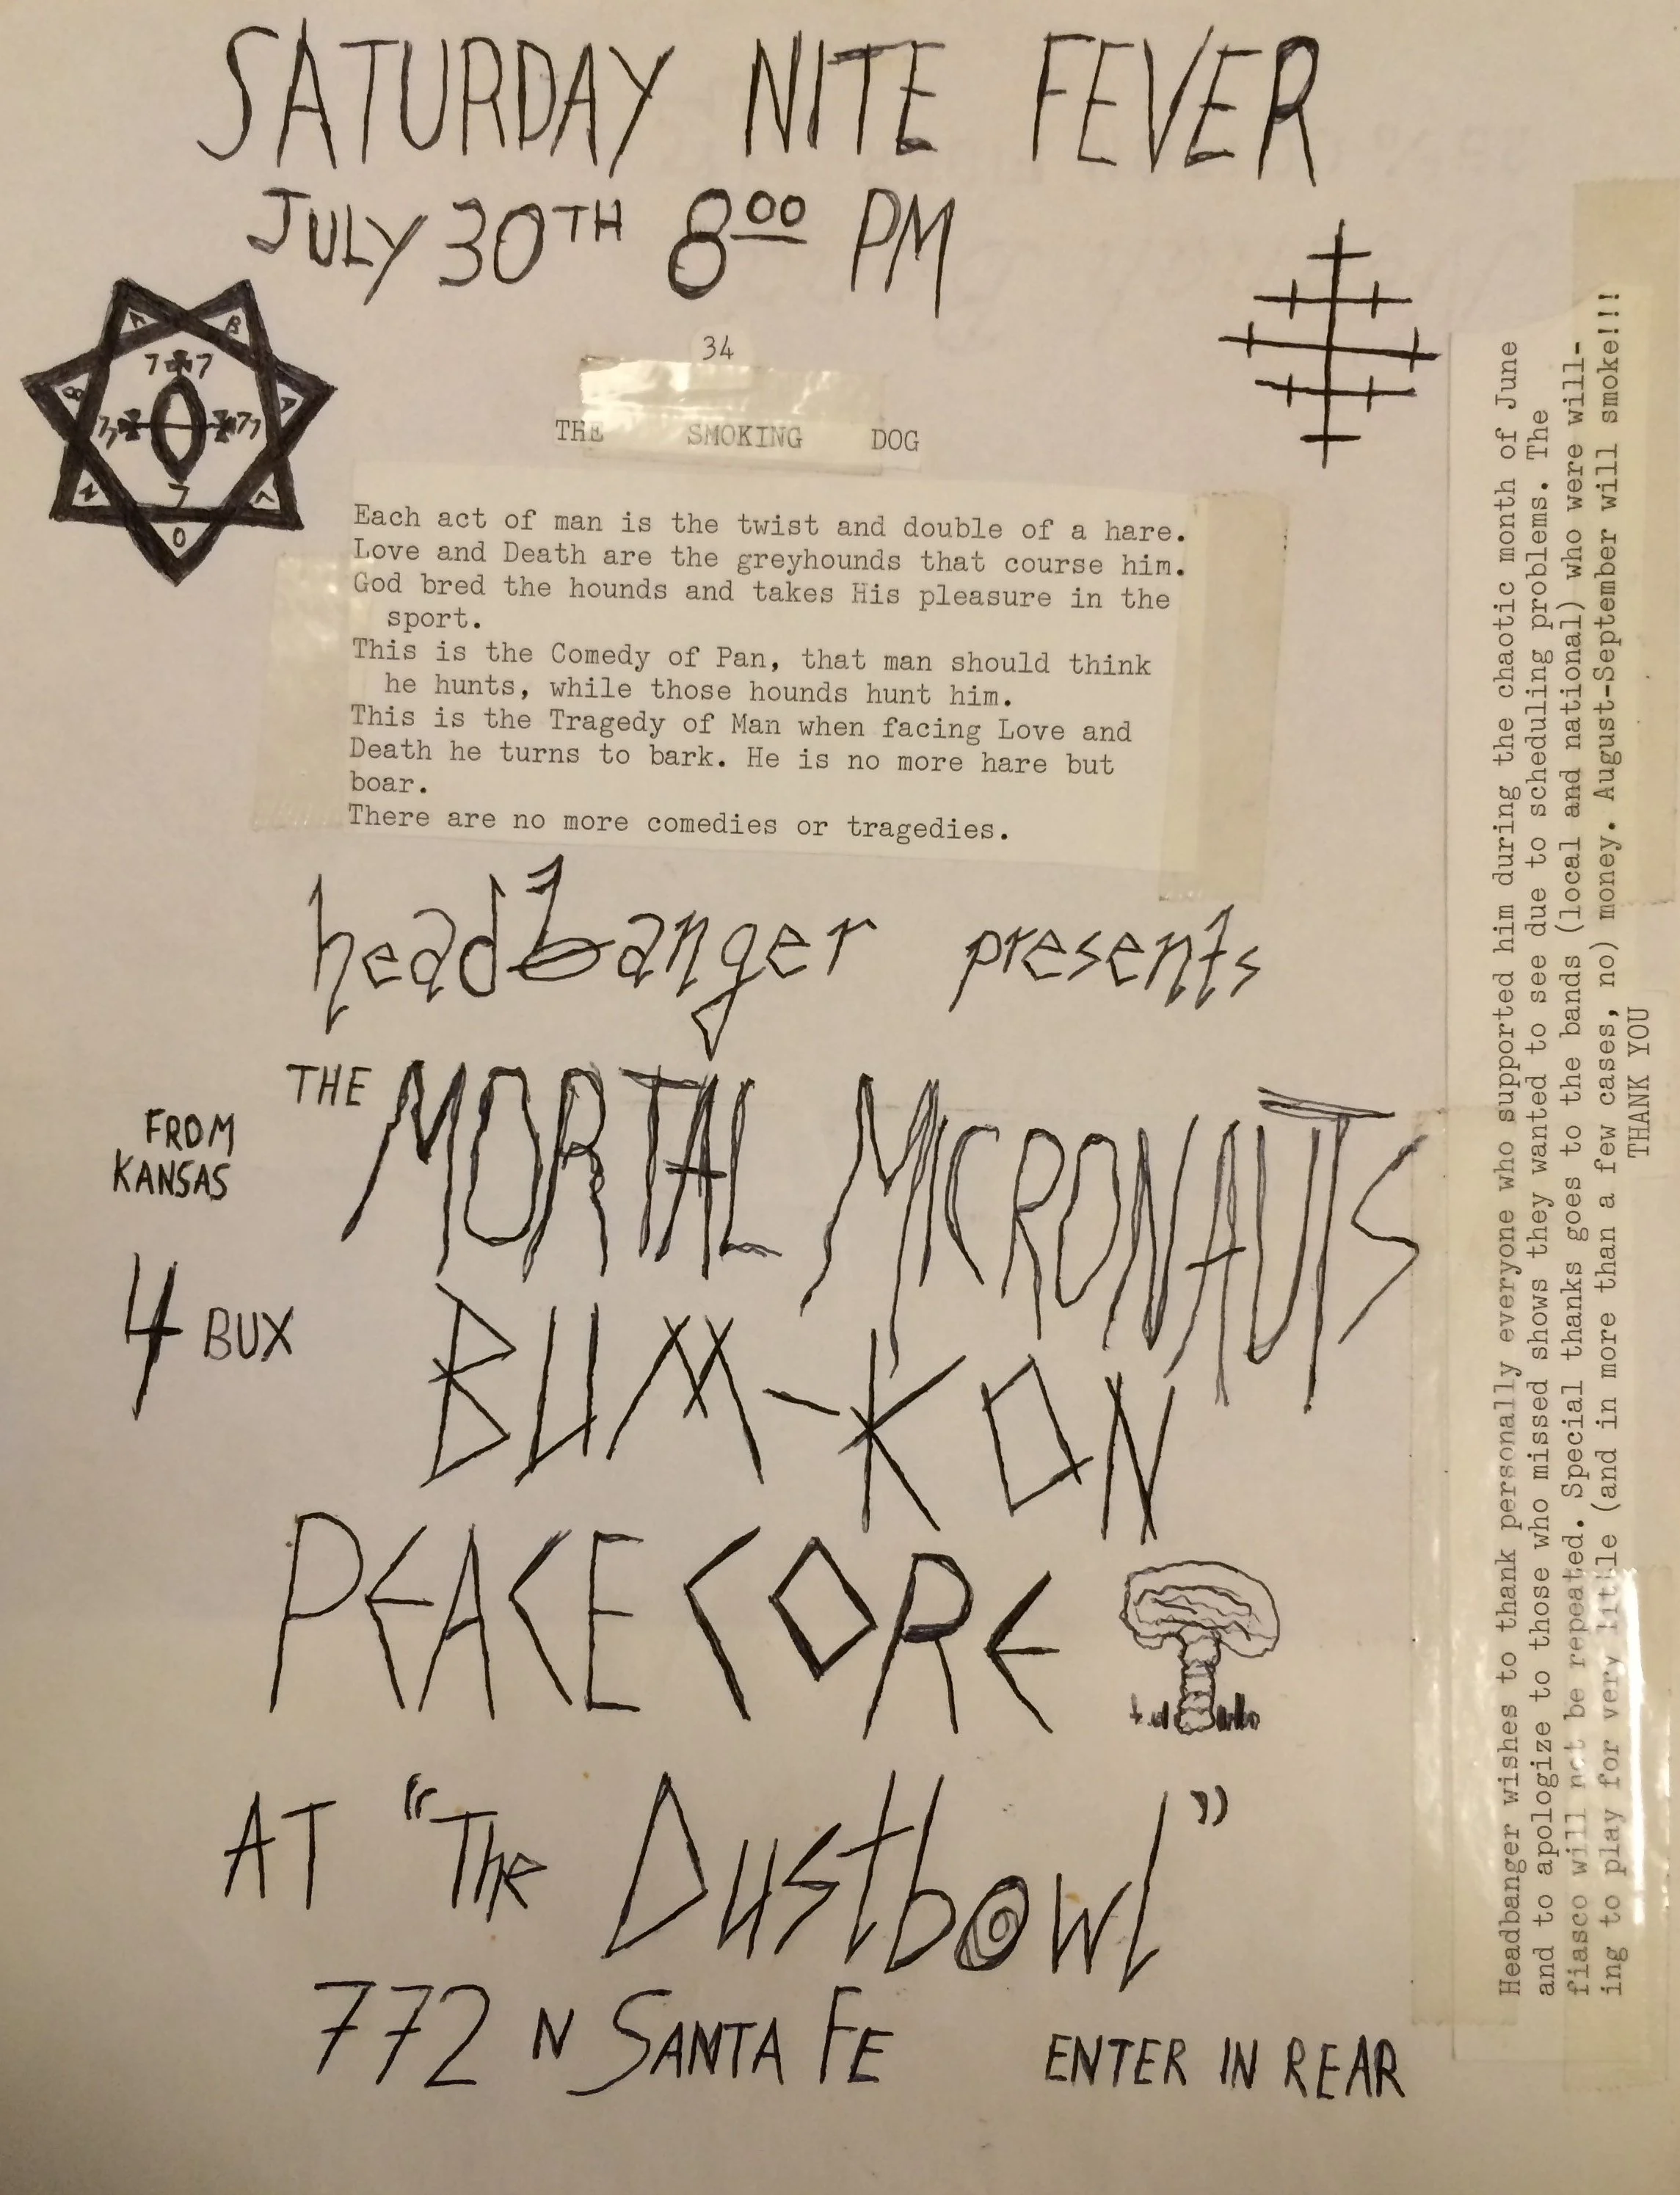 SATURDAY NITE FEVER
JULY 30TH 8 00 PM
34
THE SMOKING DOG
Each act of man is the twist and double of a hare.
Love and Death are the greyhounds that course him.
God bred the hounds and takes His pleasure in the
sport.
This is the Comedy of Pan, that man should think
he hunts, while those hounds hunt him.
This is the Tragedy of Man when facing Love and
Death he turns to bark. He is no more hare but
boar.
There are no more comedies or tragedies.
headbanger presents
THE MORTAL MICRONAUTS
FROM
KANSAS
4 BUX
BUM-KON
PEACE CORE
AT "The Dustbowl"
772 N SANTA FE ENTER IN REAR
Headbanger wishes to thank personally everyone who supported him during the chaotic month of June
and to apologize to those who missed shows they wanted to see due to scheduling problems. The
fiasco will not be repeated. Special thanks goes to the bands (local and national) who were will-
ing to play for very little (and in more than a few cases, no) money. August-September will smoke!!!
THANK YOU
7 7
77 77
7
O